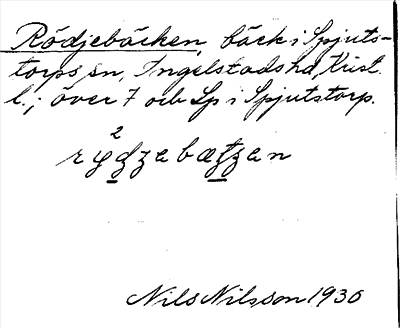 Rödjebäcken, bäck i Spjuts-
torps sn, Ingelstads hd, Krist.
l.; över 7 och Sp i Spjutstorp.
2
rydzebætzen
Nils Nilsson 1930